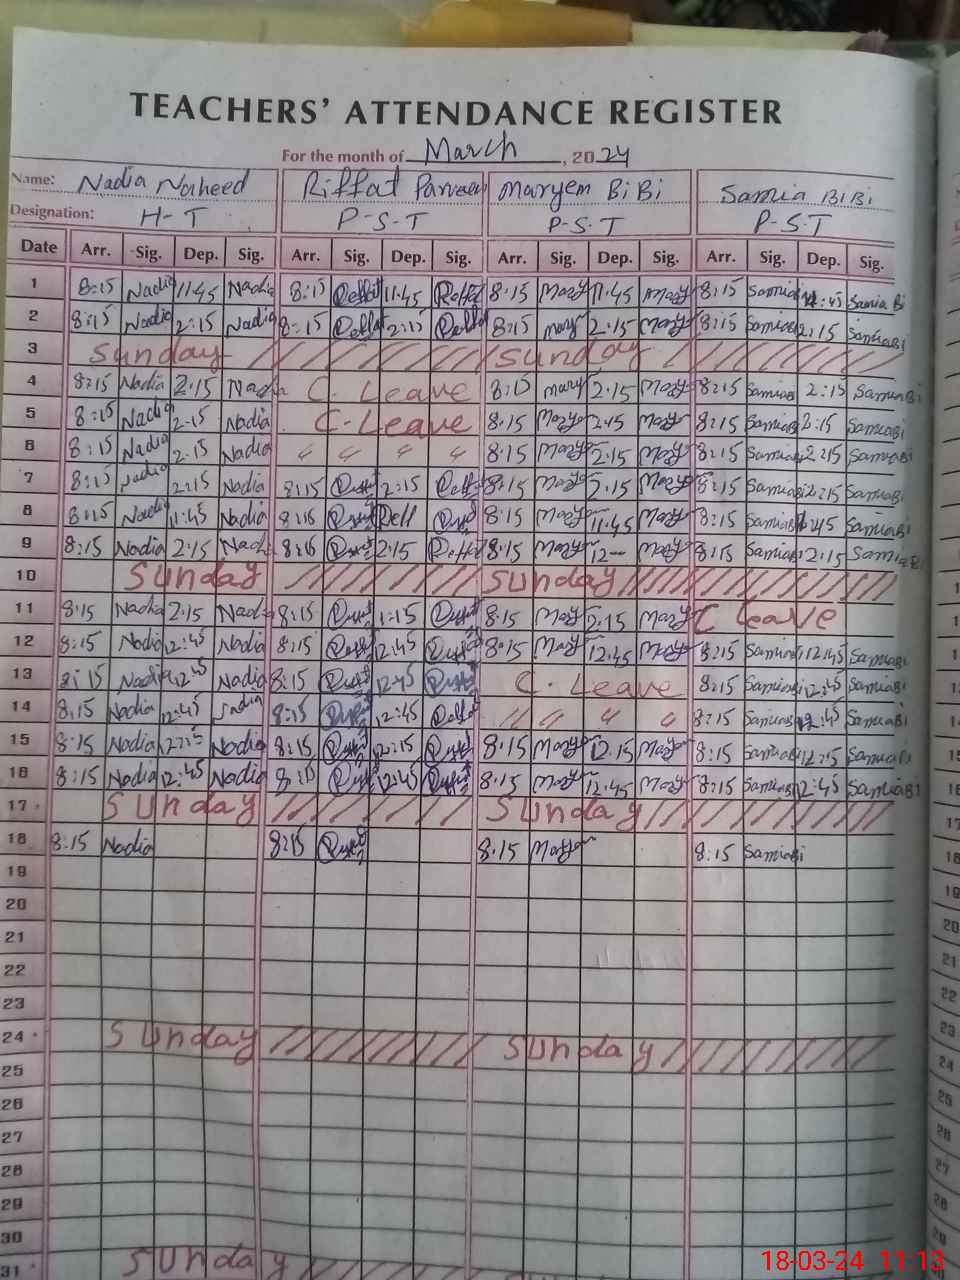 TEACHERS' ATTENDANCE REGISTER
For the month of March, 2024
Name: Nadia Naheed Riffat Parveen Maryem BiBi Samia BiBi
Designation: H-T P-S-T P-S-T P-S-T
Date Arr. Sig. Dep. Sig. Arr. Sig. Dep. Sig. Arr. Sig. Dep. Sig. Arr. Sig. Dep. Sig.
1 8:15 Nadia 11:45 Nadia 8:15 11:45 8:15 Mary 11:45 Mary 8:15 Samia :45 Samia Bi
2 8:15 Nadia 2:15 Nadia 8:15 2:15 8:15 Mary 2:15 Mary 8:15 SamiaBi 2:15 SamiaBi
3 Sunday Sunday
4 8:15 Nadia 2:15 Nadia C. Leave 8:15 Mary 2:15 Mary 8:15 SamiaBi 2:15 SamiaBi
5 8:15 Nadia 2:15 Nadia C-Leave 8:15 Mary 2:15 Mary 8:15 SamiaBi 2:15 SamiaBi
6 8:15 Nadia 2:15 Nadia " " " " 8:15 Mary 2:15 Mary 8:15 SamiaBi 2:15 SamiaBi
7 8:15 Nadia 2:15 Nadia 8:15 2:15 8:15 Mary 2:15 Mary 8:15 SamiaBi 2:15 SamiaBi
8 8:15 Nadia 11:45 Nadia 8:15 8:15 Mary 11:45 Mary 8:15 SamiaBi :45 SamiaBi
9 8:15 Nadia 2:15 Nadia 8:15 2:15 8:15 Mary 12 Mary 8:15 SamiaBi 2:15 SamiaBi
10 Sunday Sunday
11 8:15 Nadia 2:15 Nadia 8:15 1:15 8:15 Mary 2:15 Mary C Leave
12 8:15 Nadia 12:45 Nadia 8:15 12:45 8:15 Mary 12:45 Mary 8:15 SamiaBi 12:45 SamiaBi
13 8:15 Nadia 12:45 Nadia 8:15 12:45 C. Leave 8:15 SamiaBi 12:45 SamiaBi
14 8:15 Nadia 12:45 Nadia 8:15 12:45 " " " " 8:15 SamiaBi 12:45 SamiaBi
15 8:15 Nadia 12:15 Nadia 8:15 12:15 8:15 Mary 12:15 Mary 8:15 SamiaBi 12:15 SamiaBi
16 8:15 Nadia 12:45 Nadia 8:15 12:45 8:15 Mary 12:45 Mary 8:15 SamiaBi 12:45 SamiaBi
17 Sunday Sunday
18 8:15 Nadia 8:15 8:15 Mary 8:15 SamiaBi
19
20
21
22
23
24 Sunday Sunday
25
26
27
28
29
30
31 Sunday
18-03-24 11:13